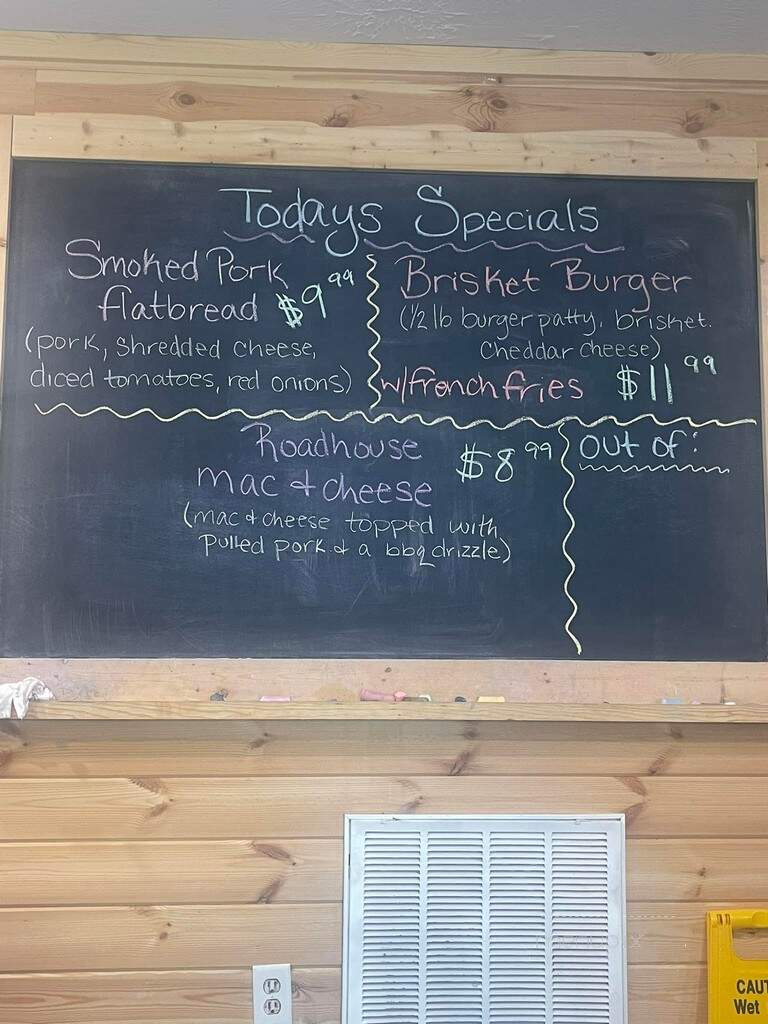 Todays Specials
Smoked Pork
flatbread $9.99
(pork, shredded cheese,
diced tomatoes, red onions)
Brisket Burger
(1/2 lb burger patty, brisket.
cheddar cheese)
w/french fries $11.99
Roadhouse
mac & cheese $8.99
(mac & cheese topped with
pulled pork & a bbq drizzle)
out of:
CAUT
Wet